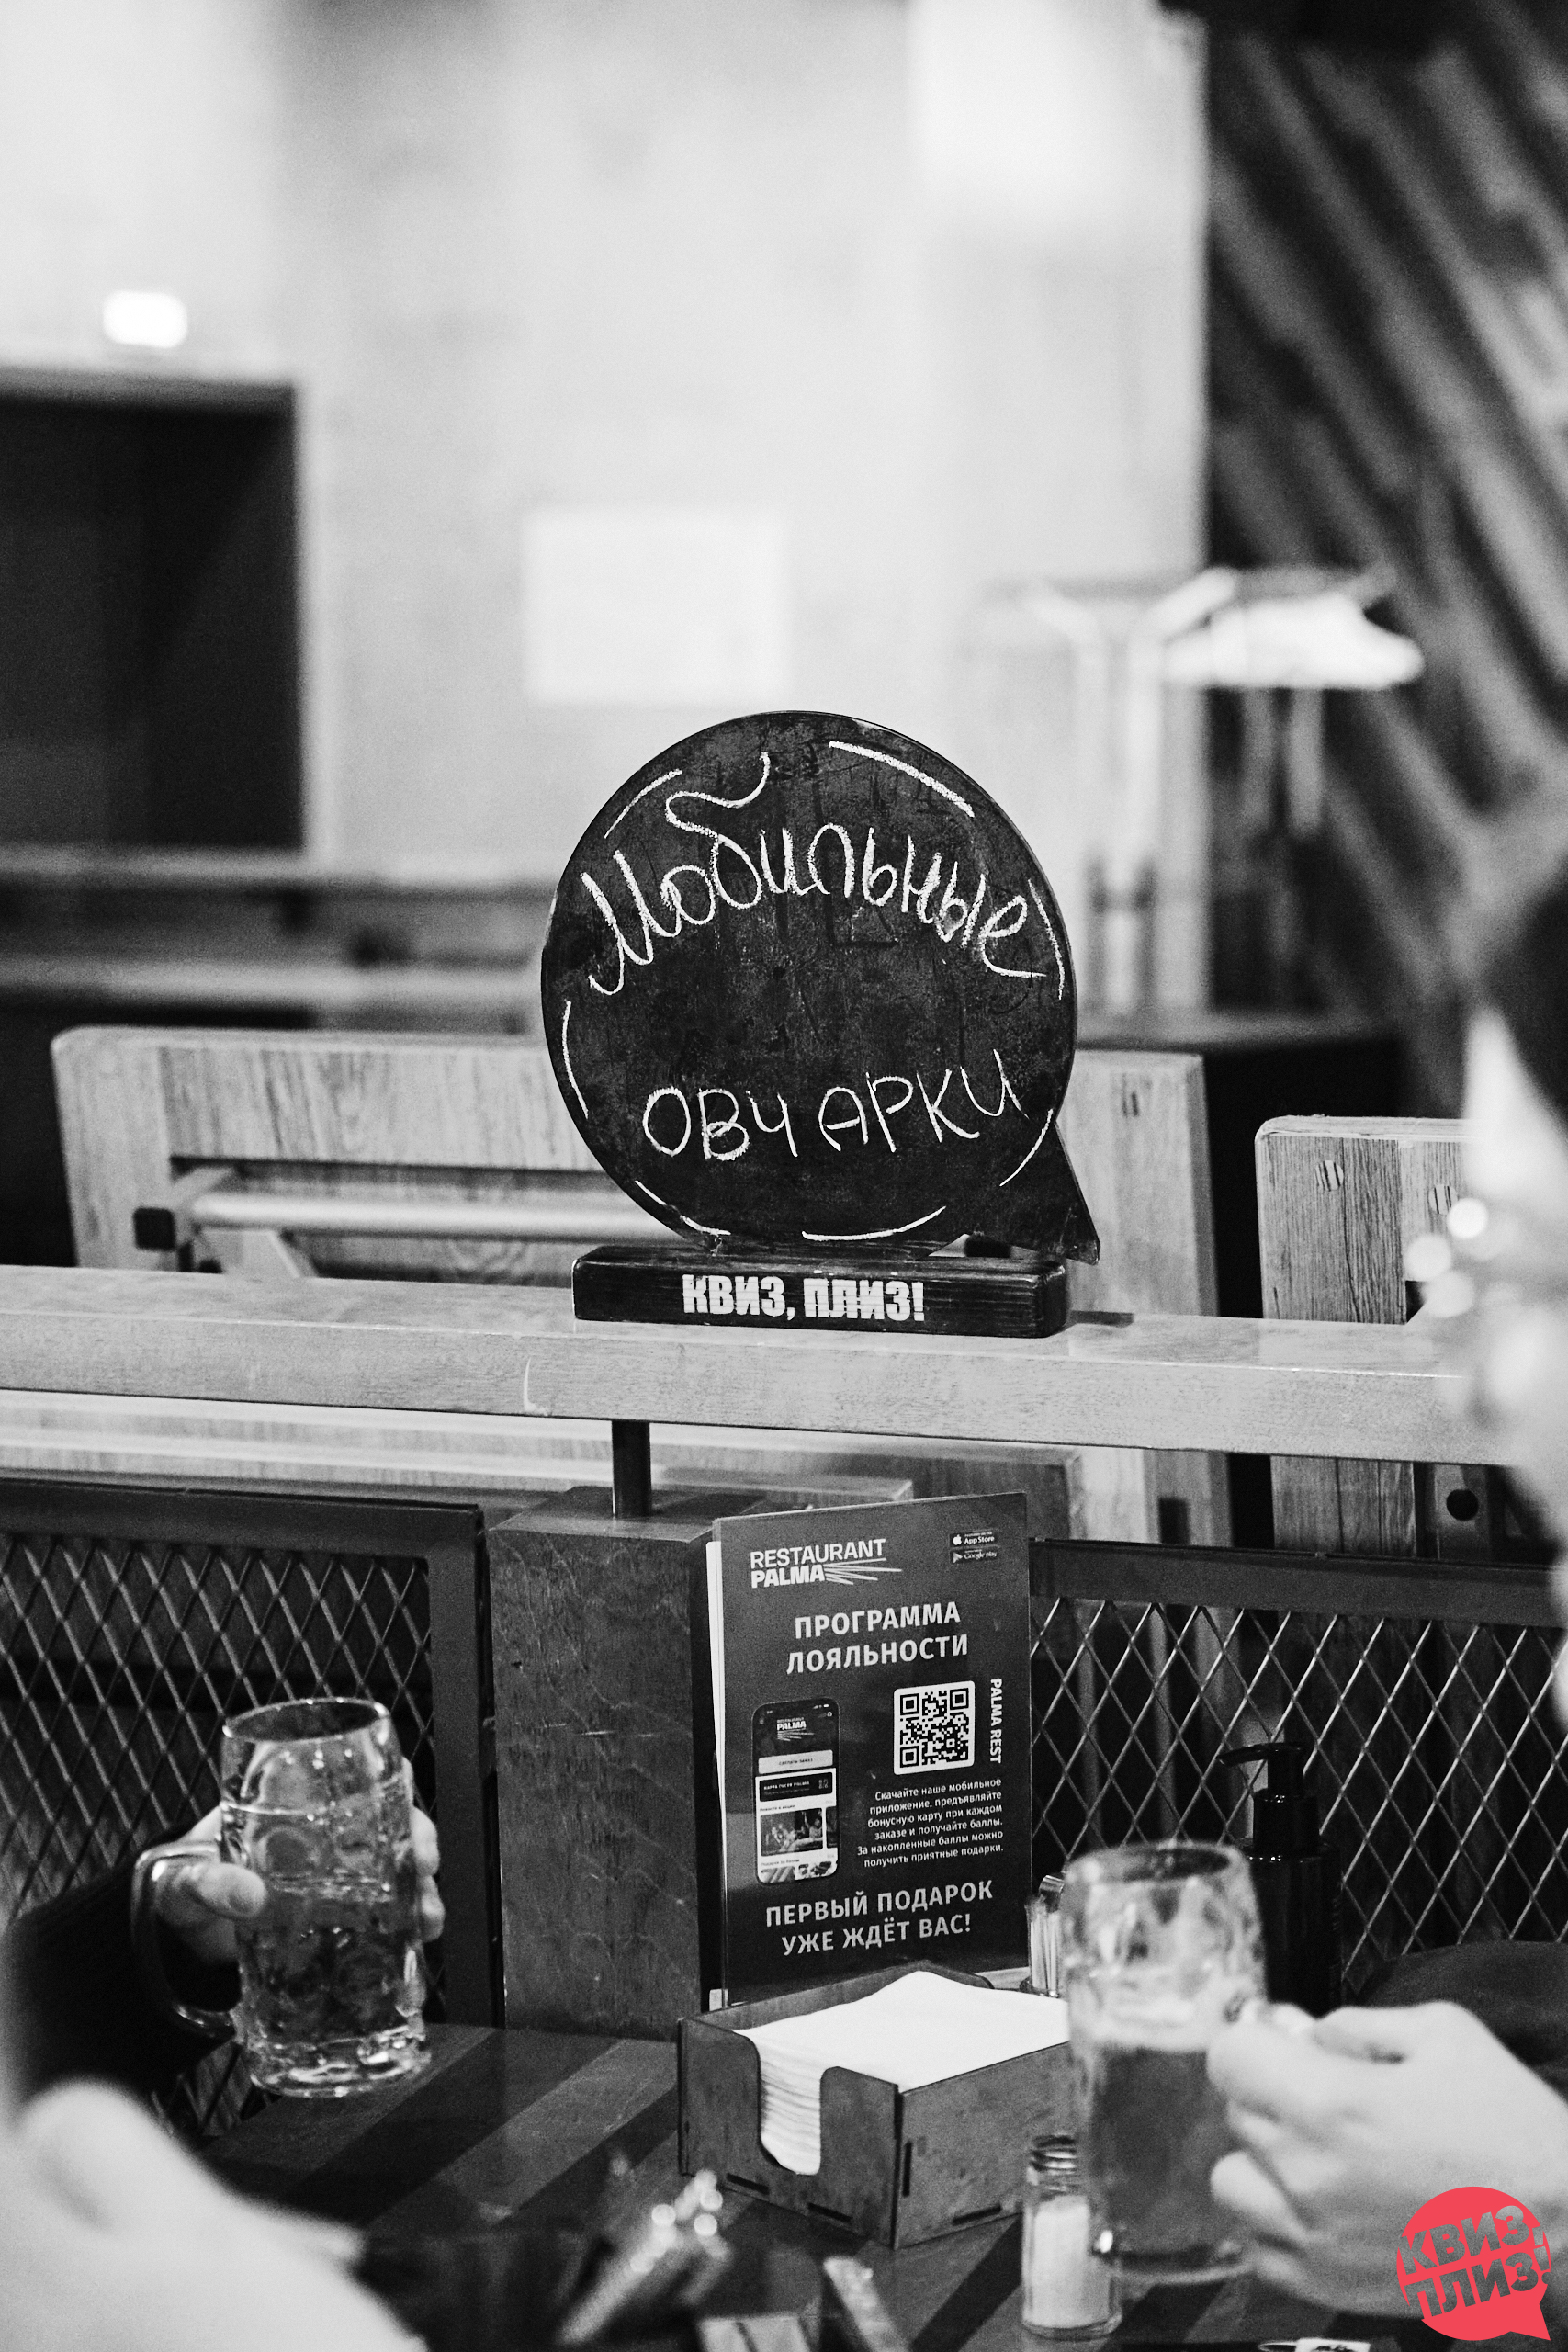 Мобильные
ОВЧАРКИ
КВИЗ, ПЛИЗ!
RESTAURANT
PALMA
App Store
Google play
ПРОГРАММА
ЛОЯЛЬНОСТИ
PALMA REST
PALMA
Скачайте наше мобильное
приложение, предъявляйте
бонусную карту при каждом
заказе и получайте баллы.
За накопленные баллы можно
получить приятные подарки.
ПЕРВЫЙ ПОДАРОК
УЖЕ ЖДЁТ ВАС!
КВИЗ,
ПЛИЗ!